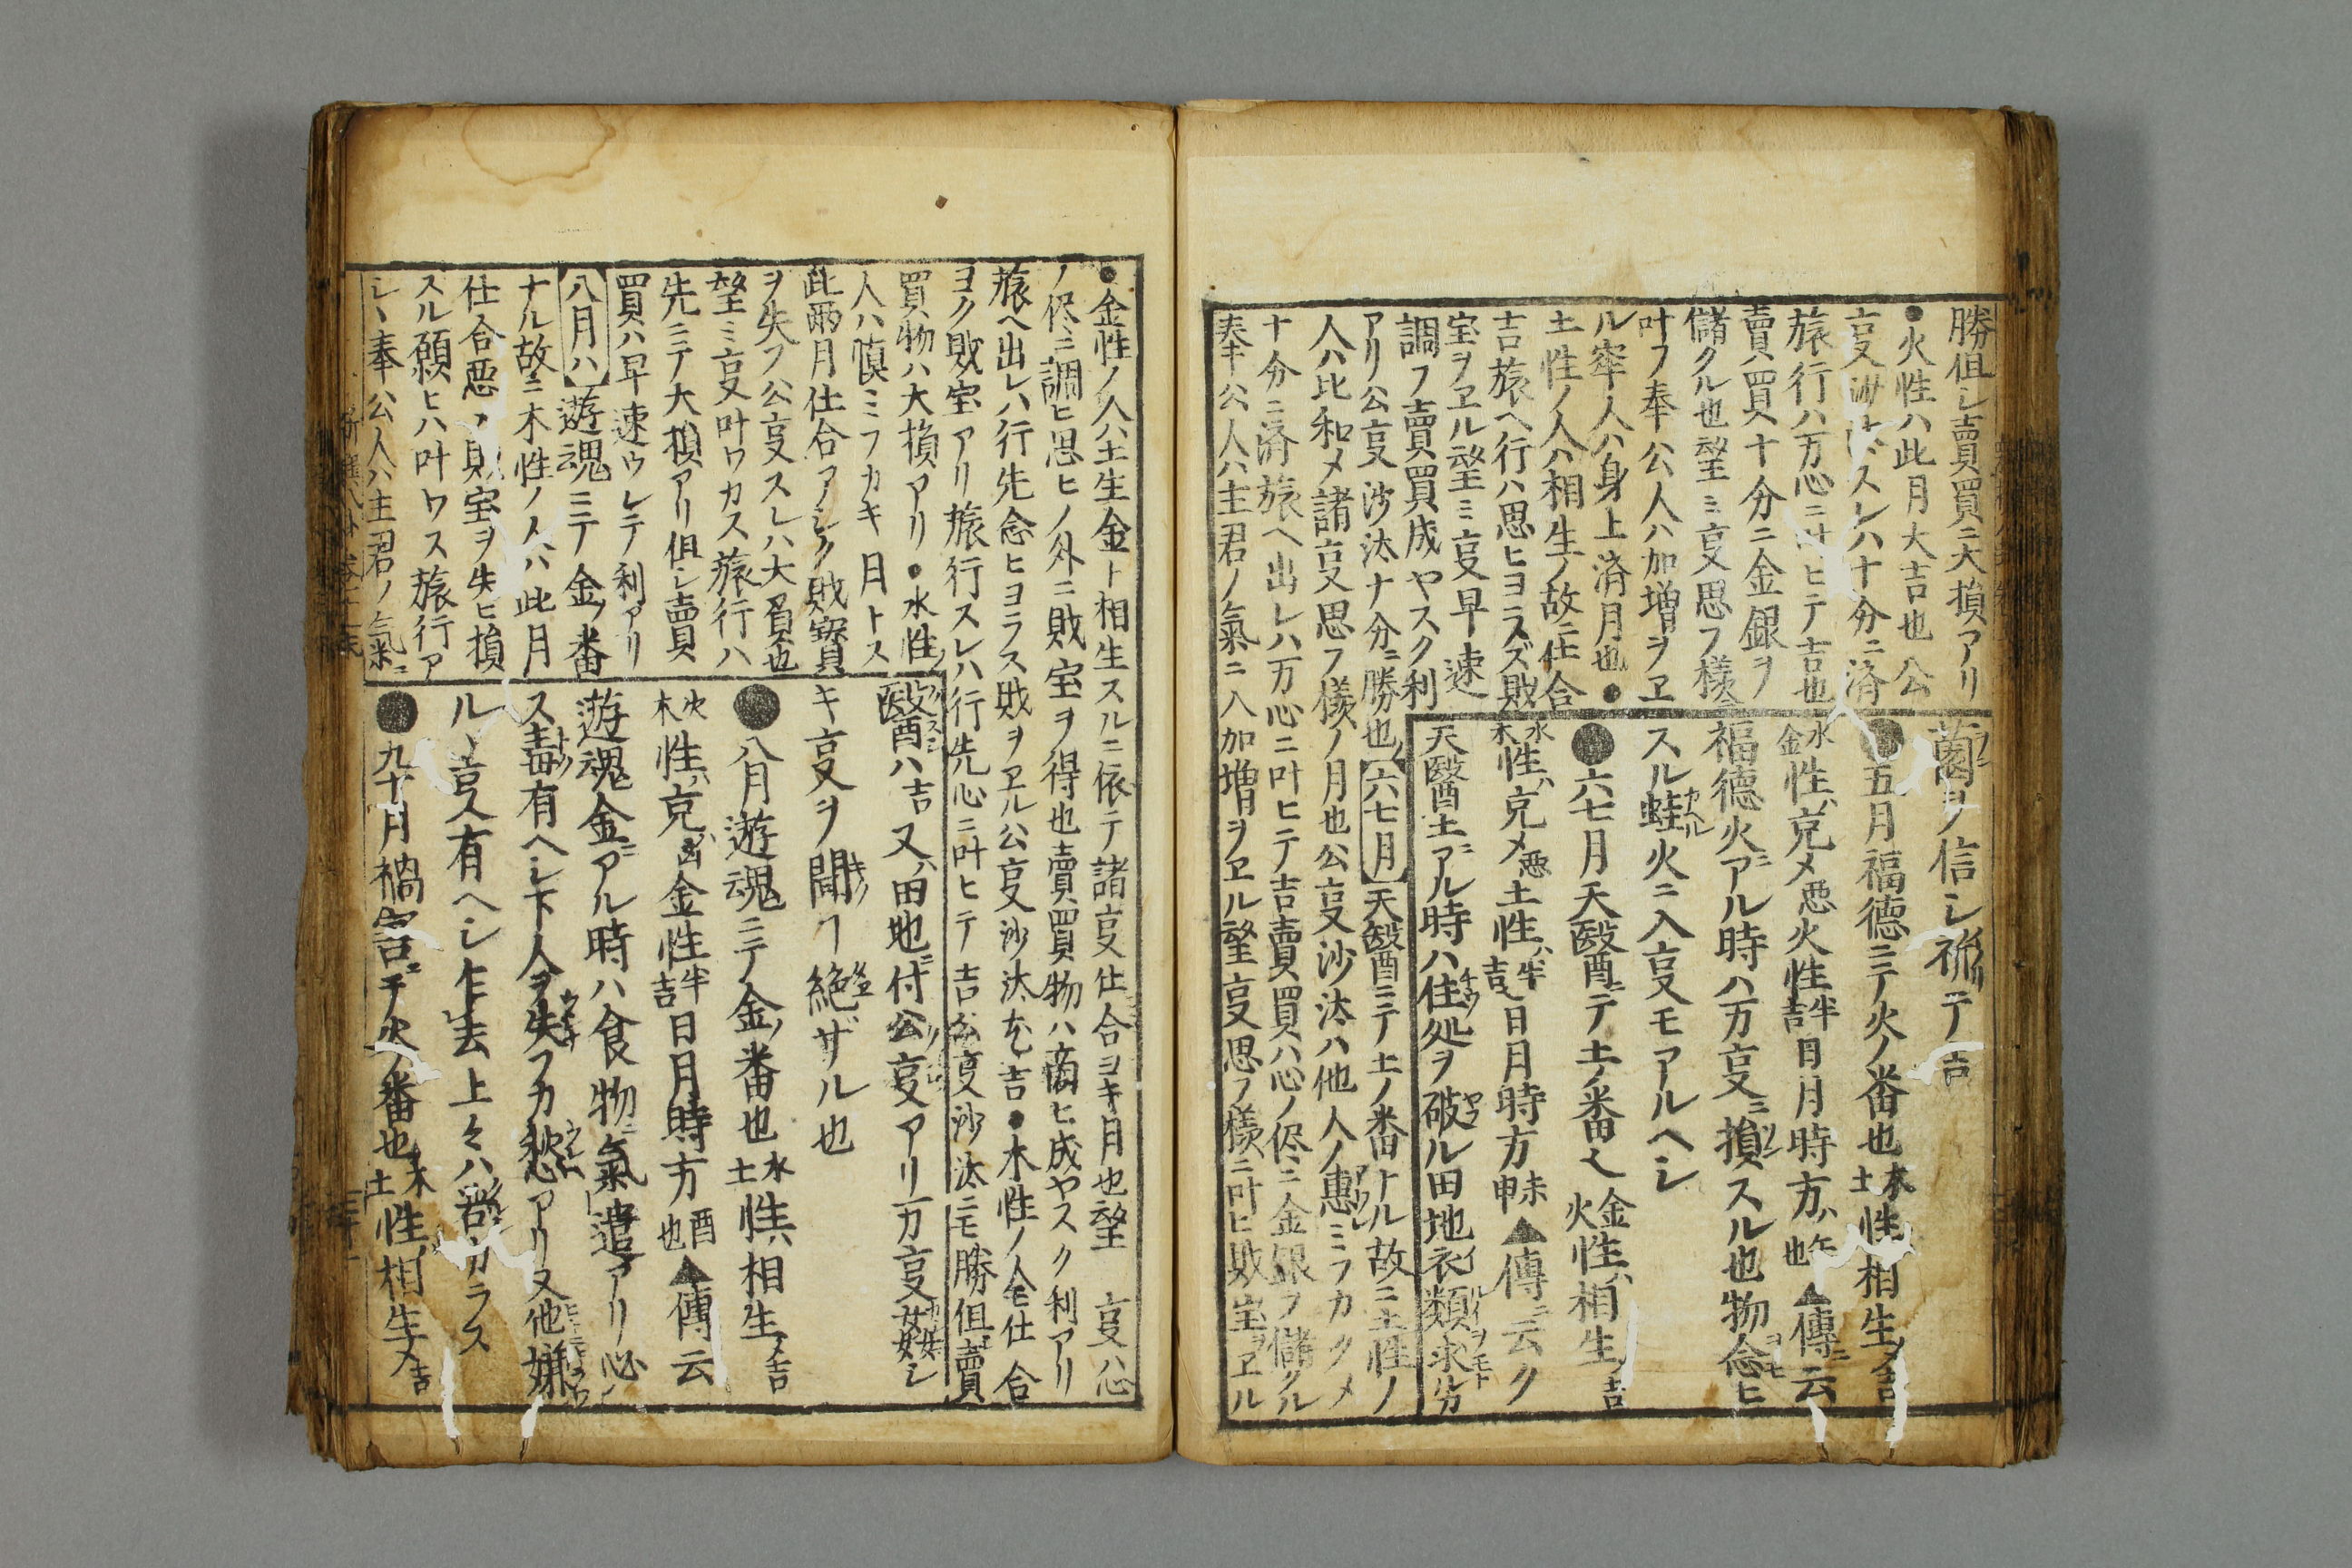 勝但シ賣買ニ大損アリ
●火性ハ此月大吉也公
叓沙汰スレハ十分ニ済
旅行ハ万心ニ叶ヒテ吉也
賣買ハ十分ニ金銀ヲ
儲クル也望ミ叓思フ樣ニ
叶フ奉公人ハ加増ヲヱ
ル牢人ハ身上済月也●
土性ノ人ハ相生ノ故ニ仕合
吉旅ヘ行ハ思ヒヨラズ敗
宝ヲヱル望ミ叓早速
調フ賣買成ヤスク利
アリ公叓沙汰ナ分ニ勝也【六七月】天醫ニテ土ノ番ナル故ニ土性ノ
人ハ比和メ諸叓思フ樣ノ月也公叓沙汰ハ他人ノ惠ミフカクメ
十分ニ済旅ヘ出レハ万心ニ叶ヒテ吉賣買ハ心ノ侭ニ金銀ヲ儲クル
奉公人ハ主君ノ氣ニ入加増ヲヱル望叓思フ樣ニ叶ヒ敗宝ヲヱル
ヲ信シ祈テ吉
●五月福德ニテ火ノ番也木土性相生メ吉
水金性ハ克メ悪火性半吉日月時方ハ午也▲傳ニ云
福德火ニアル時ハ万叓ニ損スル也物念ヒ
スル蛙火ニ入叓モアルヘシ
●六七月天醫ニテ土ノ番也金火性ハ相生メ吉
水木性ハ克メ悪土性ハ半吉日月時方未申▲傳ニ云ク
天醫土ニアル時ハ住処ヲ破ル田地衣類求ルカ
●金性ノ人ハ土生金ト相生スルニ依テ諸叓仕合ヨキ月也望叓ハ心
ノ侭ニ調ヒ思ヒノ外ニ敗宝ヲ得也賣買物ハ商ヒ成ヤスク利アリ
旅ヘ出レハ行先念ヒヨラス敗ヲヱル公叓沙汰尤吉●木性ノ人モ仕合
ヨク敗宝アリ旅行スレハ行先心ニ叶ヒテ吉公叓沙汰ニモ勝但賣
買物ハ大損アリ●水性ノ
人ハ慎ミフカキ月トス
此兩月仕合アシク敗寳
ヲ失フ公叓スレハ大負也
望ミ叓叶ワカス旅行ハ
先ニテ大損アリ但シ賣
買ハ早速ウレテ利アリ
【八月ハ】遊魂ニテ金ノ番
ナル故ニ木性ノ人ハ此月
仕合悪ク敗宝ヲ失ヒ損
スル願ヒハ叶ワス旅行ア
シヽ奉公人ハ主君ノ氣ニ
醫ハ吉又ハ田地ニ付公叓アリ一カ叓女嫁シ
キ叓ヲ聞ヿ絶ザル也
●八月遊魂ニテ金ノ番也水土性ハ相生メ吉
火木性ハ克メ凶金性半吉日月時方酉也▲傳云
遊魂金ニアル時ハ食物ニ氣遣アリ必ノ
ス毒有ヘシ下人ヲ失フカ愁アリ又他嫌
ルヽ叓有ヘシ乍去上々ハ苦カラス
●九十月禍害ニテ火ノ番也木土性ハ相生メ吉